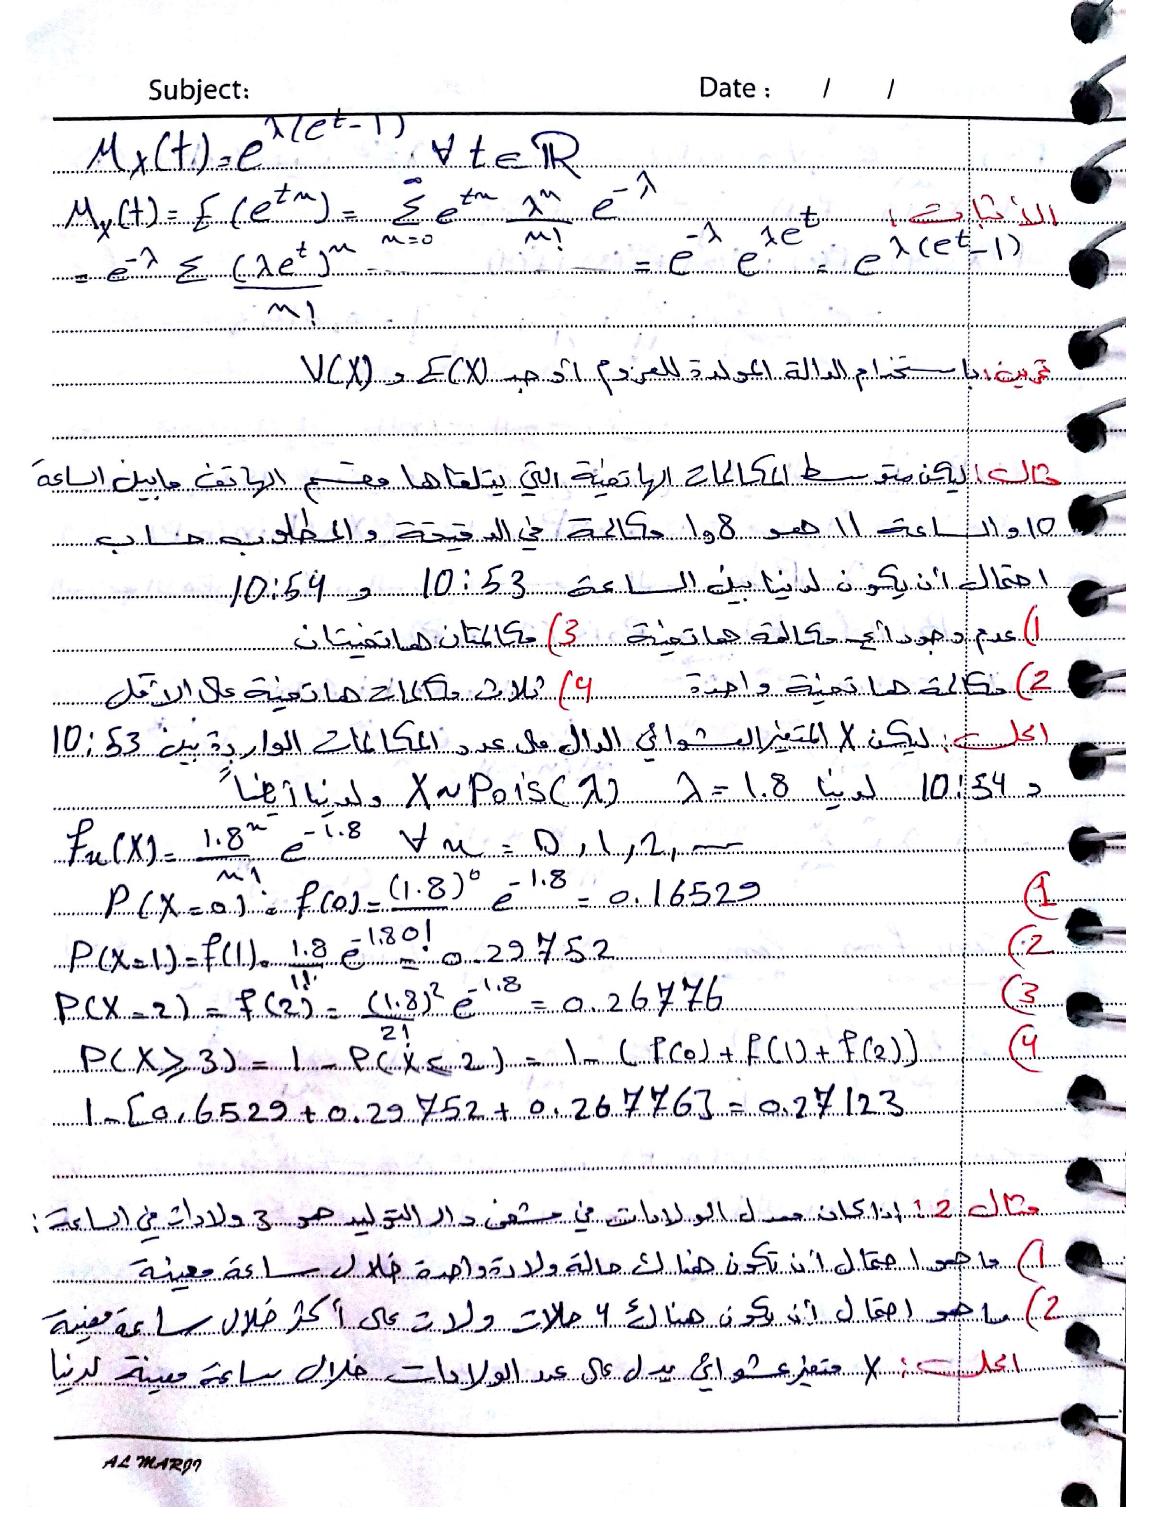 Subject: Date : / /
M_X(t) = e^{λ(e^t-1)} ∀ t ∈ ℝ
الاثبات: M_X(t) = E(e^{tx}) = Σ_{x=0}^{∞} e^{tx} λ^x/x! e^{-λ}
= e^{-λ} Σ (λe^t)^x/x! = e^{-λ} e^{λe^t} = e^{λ(e^t-1)}
تمرين: باستخدام الدالة المولدة للعزوم أوجد E(X) و V(X)
مثال: ليكن متوسط المكالمات الهاتفية التي يتلقاها مقسم الهاتف مابين الساعة
10 والساعة 11 هو 1,8 مكالمة في الدقيقة والمطلوب حساب
احتمال أن يكون لدينا بين الساعة 10:53 و 10:54
1) عدم وجود أي مكالمة هاتفية 3) مكالمتان هاتفيتان
2) مكالمة هاتفية واحدة 4) ثلاث مكالمات هاتفية على الاقل
الحل: ليكن X المتغير العشوائي الدال على عدد المكالمات الواردة بين 10:53
و 10:54 لدينا λ = 1.8 X~Pois(λ) ولدينا أيضاً
f_x(X) = 1.8^x/x! e^{-1.8} ∀ x = 0, 1, 2, ...
1) P(X=0) = f(0) = (1.8)^0/0! e^{-1.8} = 0.16529
2) P(X=1) = f(1) = 1.8/1! e^{-1.8} = 0.29752
3) P(X=2) = f(2) = (1.8)^2/2! e^{-1.8} = 0.26776
4) P(X≥3) = 1 - P(X≤2) = 1 - (f(0) + f(1) + f(2))
1 - [0.16529 + 0.29752 + 0.26776] = 0.27123
مثال 2: إذا كان معدل الولادات في مشفى دار التوليد هو 3 ولادات في الساعة:
1) ما هو احتمال أن تكون هناك حالة ولادة واحدة خلال ساعة معينة
2) ما هو احتمال أن يكون هناك 4 حالات ولات على أكثر خلال ساعة معينة
الحل: X متغير عشوائي يدل على عدد الولادات خلال ساعة معينة لدينا
AL MARJI